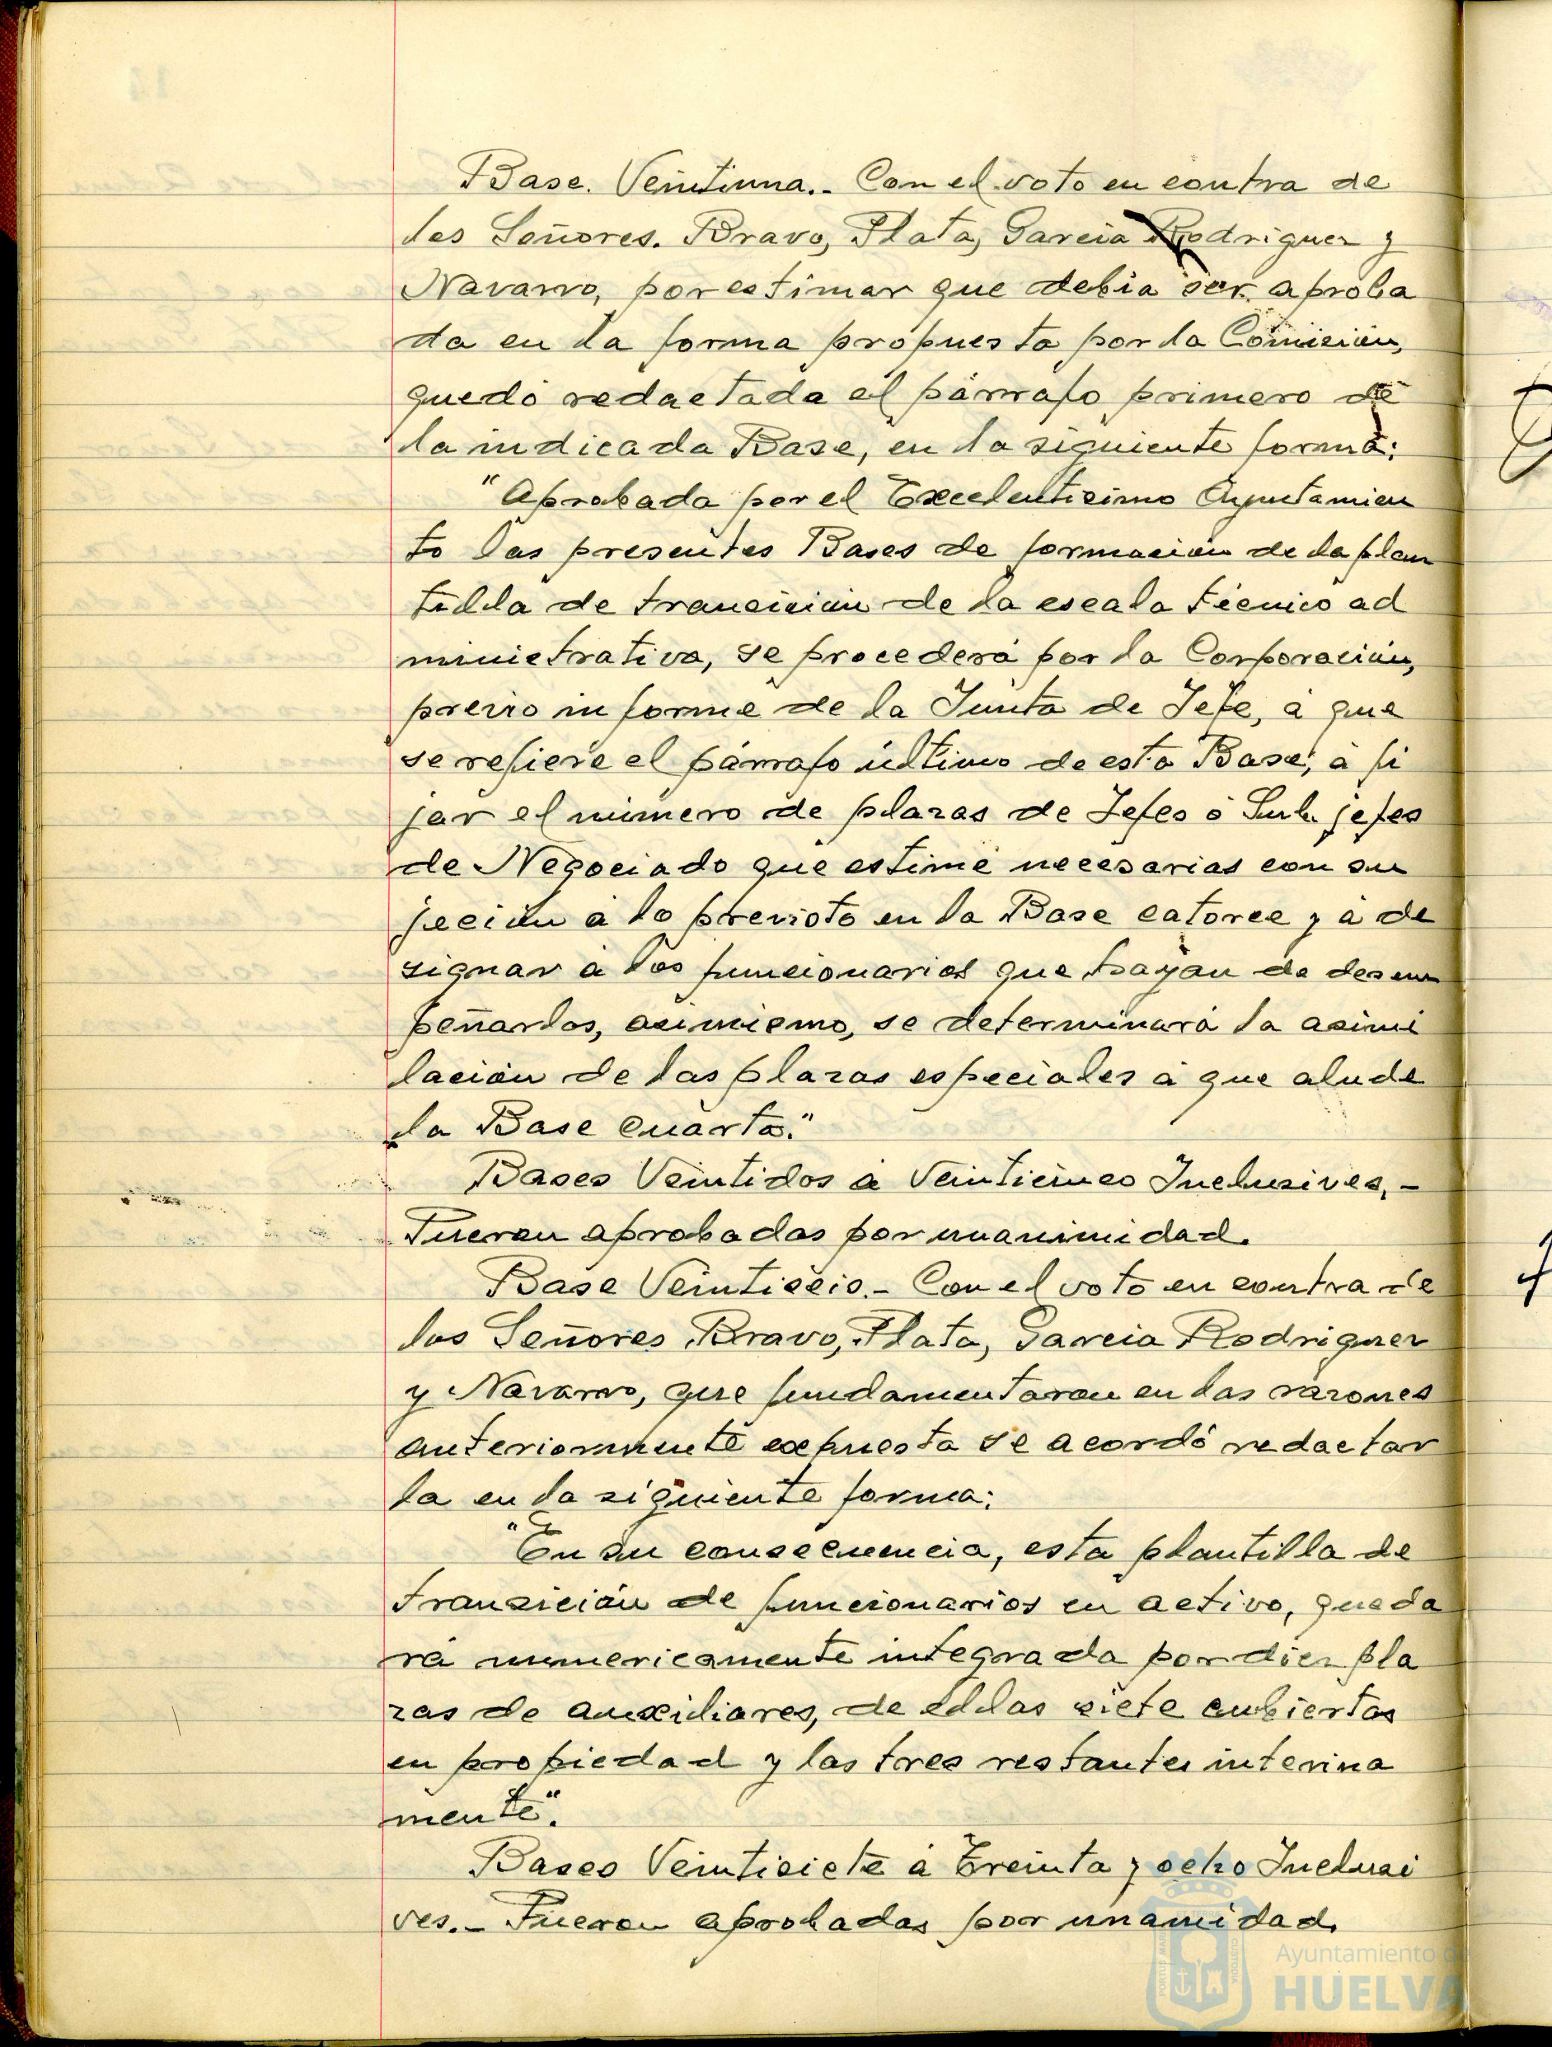 Base. Veintiuna.- Con el voto en contra de
los Señores. Bravo, Plata, Garcia Rodriguez y
Navarro, por estimar que debia ser aproba
da en la forma propuesta por la Comisión,
quedó redactada el párrafo primero de
la indicada Base, en la siguiente forma:
"Aprobada por el Excelentisimo Ayuntamien
to las presentes Bases de formación de la plan
tilla de transición de la escala técnico ad
ministrativa, se procederá por la Corporación,
previo informe de la Junta de Jefe, á que
se refiere el párrafo último de esta Base, á fi
jar el número de plazas de Jefes ó Sub jefes
de Negociado que estime necesarias con su
jeción á lo previsto en la Base catorce y á de
signar á los funcionarios que hayan de desem
peñarlos, asimismo, se determinará la asimi
lación de las plazas especiales á que alude
la Base cuarta."
Bases Veintidos á Veinticinco Inclusives.-
Fueron aprobadas por unanimidad.
Base Veintiseis.- Con el voto en contra de
los Señores Bravo, Plata, Garcia Rodriguez
y Navarro, que fundamentaron en las razones
anteriormente expuesta se acordó redactar
la en la siguiente forma:
"En su consecuencia, esta plantilla de
transición de funcionarios en activo, queda
rá numericamente integrada por diez pla
zas de auxiliares, de ellas siete cubiertas
en propiedad y las tres restantes interina
mente".
Bases Veintisiete á Treinta y ocho Inclusi
ves.- Fueron aprobadas por unamidad.
Ayuntamiento de
HUELVA